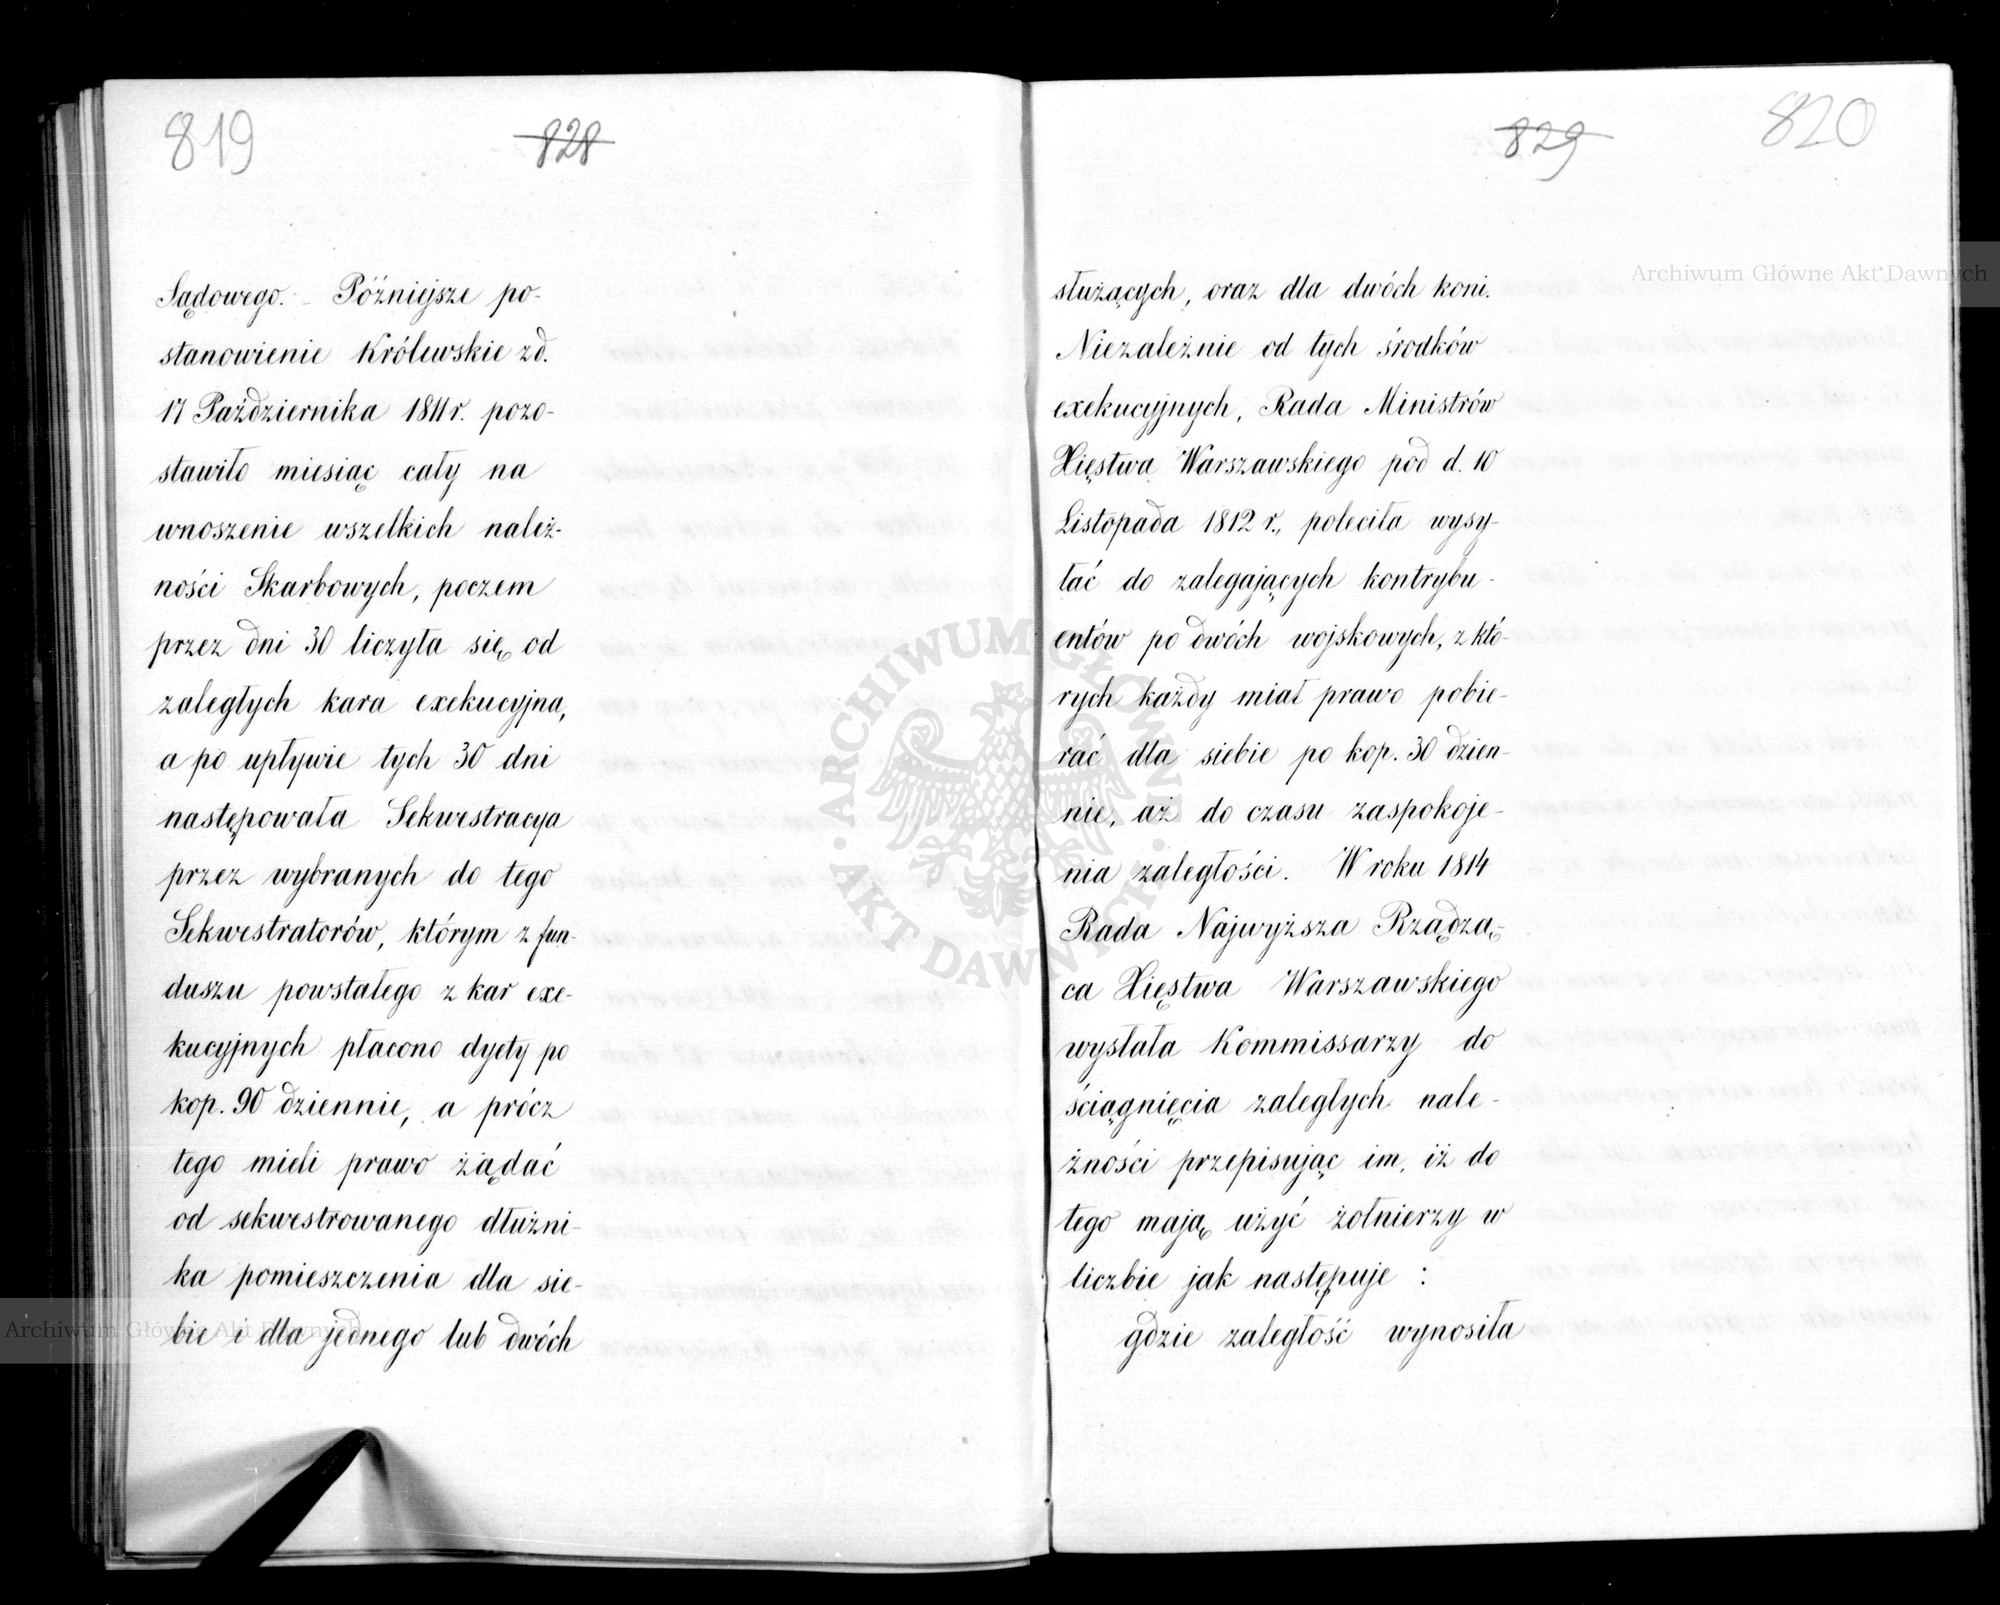 819
828
Sądowego. - Późniejsze po-
stanowienie Królewskie z d.
17 Października 1811 r. pozo-
stawiło miesiąc cały na
wnoszenie wszelkich należ-
ności Skarbowych, poczem
przez dni 30 liczyła się od
zaległych kara exekucyjna,
a po upływie tych 30 dni
następowała Sekwestracya
przez wybranych do tego
Sekwestratorów, którym z fun-
duszu powstałego z kar exe-
kucyjnych płacono dyety po
kop. 90 dziennie, a prócz
tego mieli prawo żądać
od sekwestrowanego dłużni-
ka pomieszczenia dla sie-
bie i dla jednego lub dwóch
829
820
służących, oraz dla dwóch koni.
Niezależnie od tych środków
exekucyjnych, Rada Ministrów
Xięstwa Warszawskiego pod d. 10
Listopada 1812 r., poleciła wysy-
łać do zalegających kontrybu-
entów po dwóch wojskowych, z któ-
rych każdy miał prawo pobie-
rać dla siebie po kop. 30 dzien-
nie, aż do czasu zaspokoje-
nia zaległości. W roku 1814
Rada Najwyższa Rządzą-
ca Xięstwa Warszawskiego
wysłała Kommissarzy do
ściągnięcia zaległych nale-
żności przepisując im, iż do
tego mają użyć żołnierzy w
liczbie jak następuje :
gdzie zaległość wynosiła
Archiwum Główne Akt Dawnych
Archiwum Główne Akt Dawnych
ARCHIWUM GŁÓWNE · AKT DAWNYCH ·